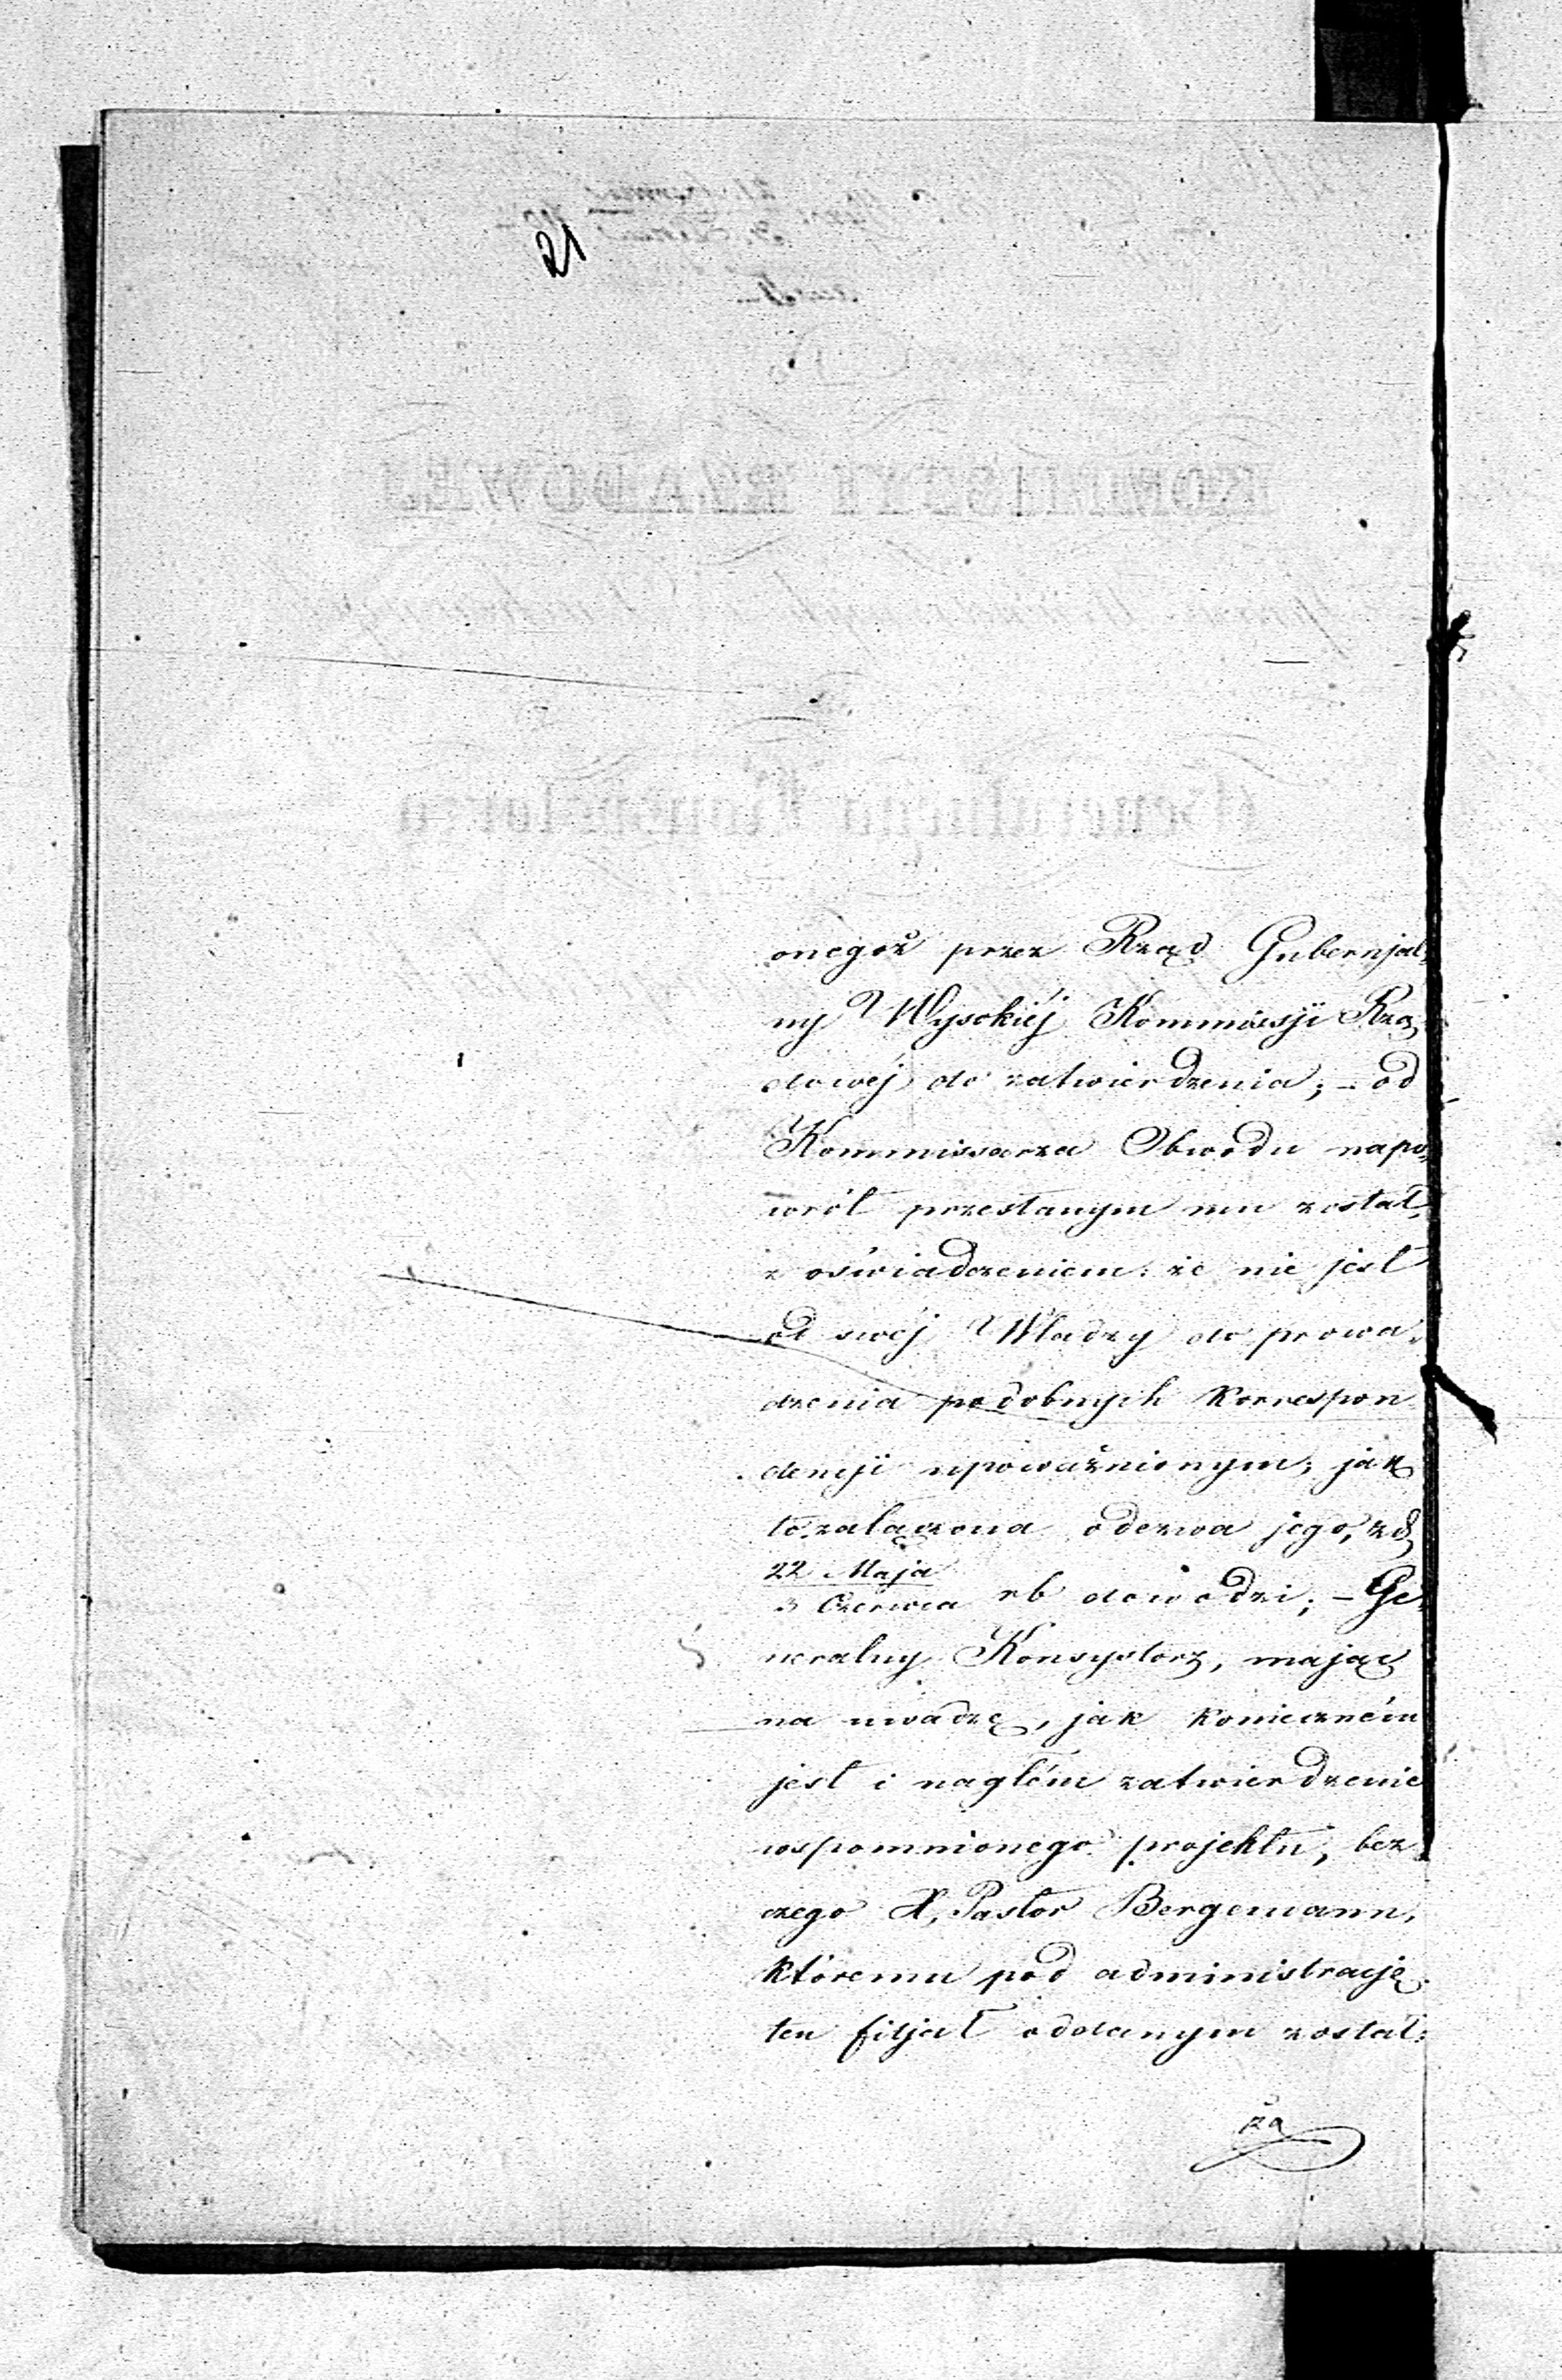 21
onegoż przez Rząd Gubernjal-
ny Wysokiéj Kommissji Rzą-
dowéj do zatwierdzenia; – od
Kommissarza Obwodu napo-
wrót przesłanym mu został,
z oświadczeniem: że nie jest
od swéj Władzy do prowa-
dzenia podobnych korrespon
dencji upoważnionym; jak
to załączona odezwa jego, z d
22 Maja
3 Czerwca rb dowodzi; – Ge-
neralny Konsystorz, mając
na uwadze, jak konieczném
jest i nagłém zatwierdzenie
wspomnionego projektu, bez
czego X. Pastor Bergemann,
któremu pod administrację
ten filjał oddanym został:
za